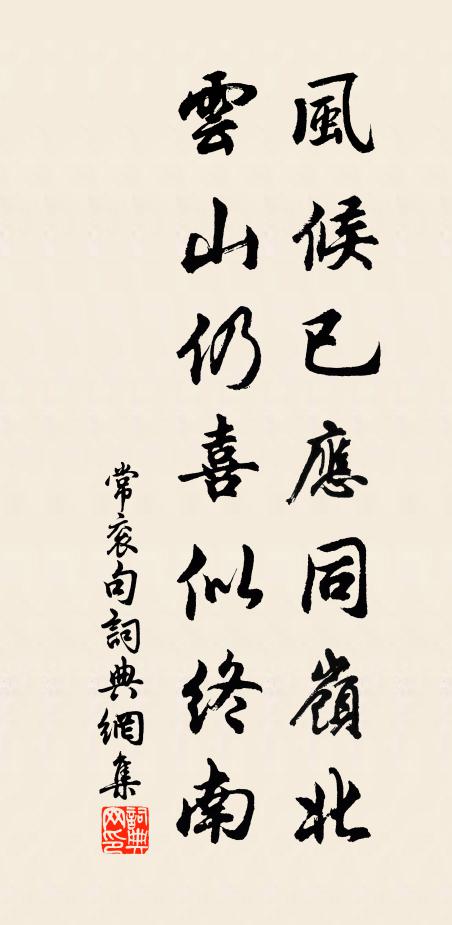 風候已應同嶺北
雲山仍喜似終南
常衮句詞典網集
詞典
网印